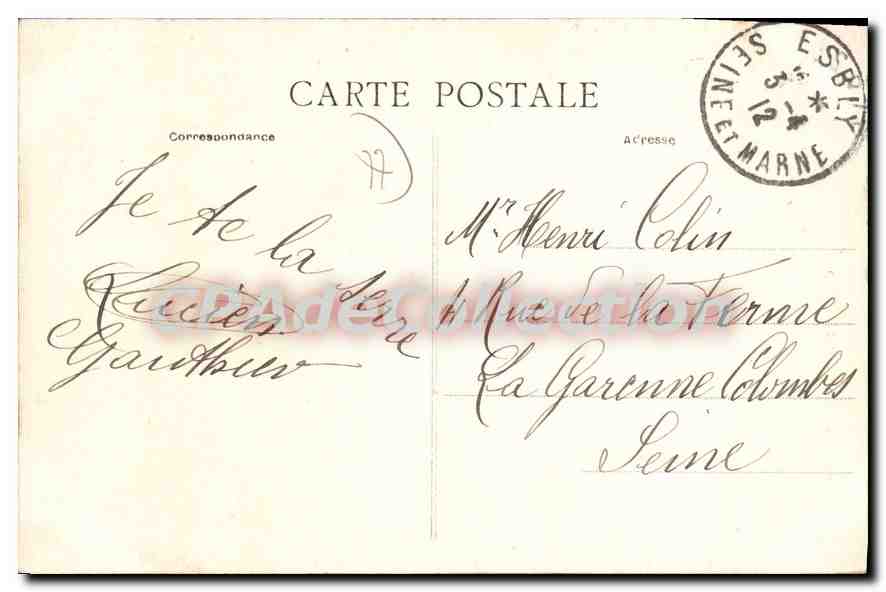 CARTE POSTALE
Correspondance
Adresse
ESBLY
SEINE ET MARNE
3 -4
12
77
Je te la serre
Lucien
Gauthier
Mr Henri Colin
4 Rue de la Ferme
La Garenne Colombes
Seine
CPAdeCollection